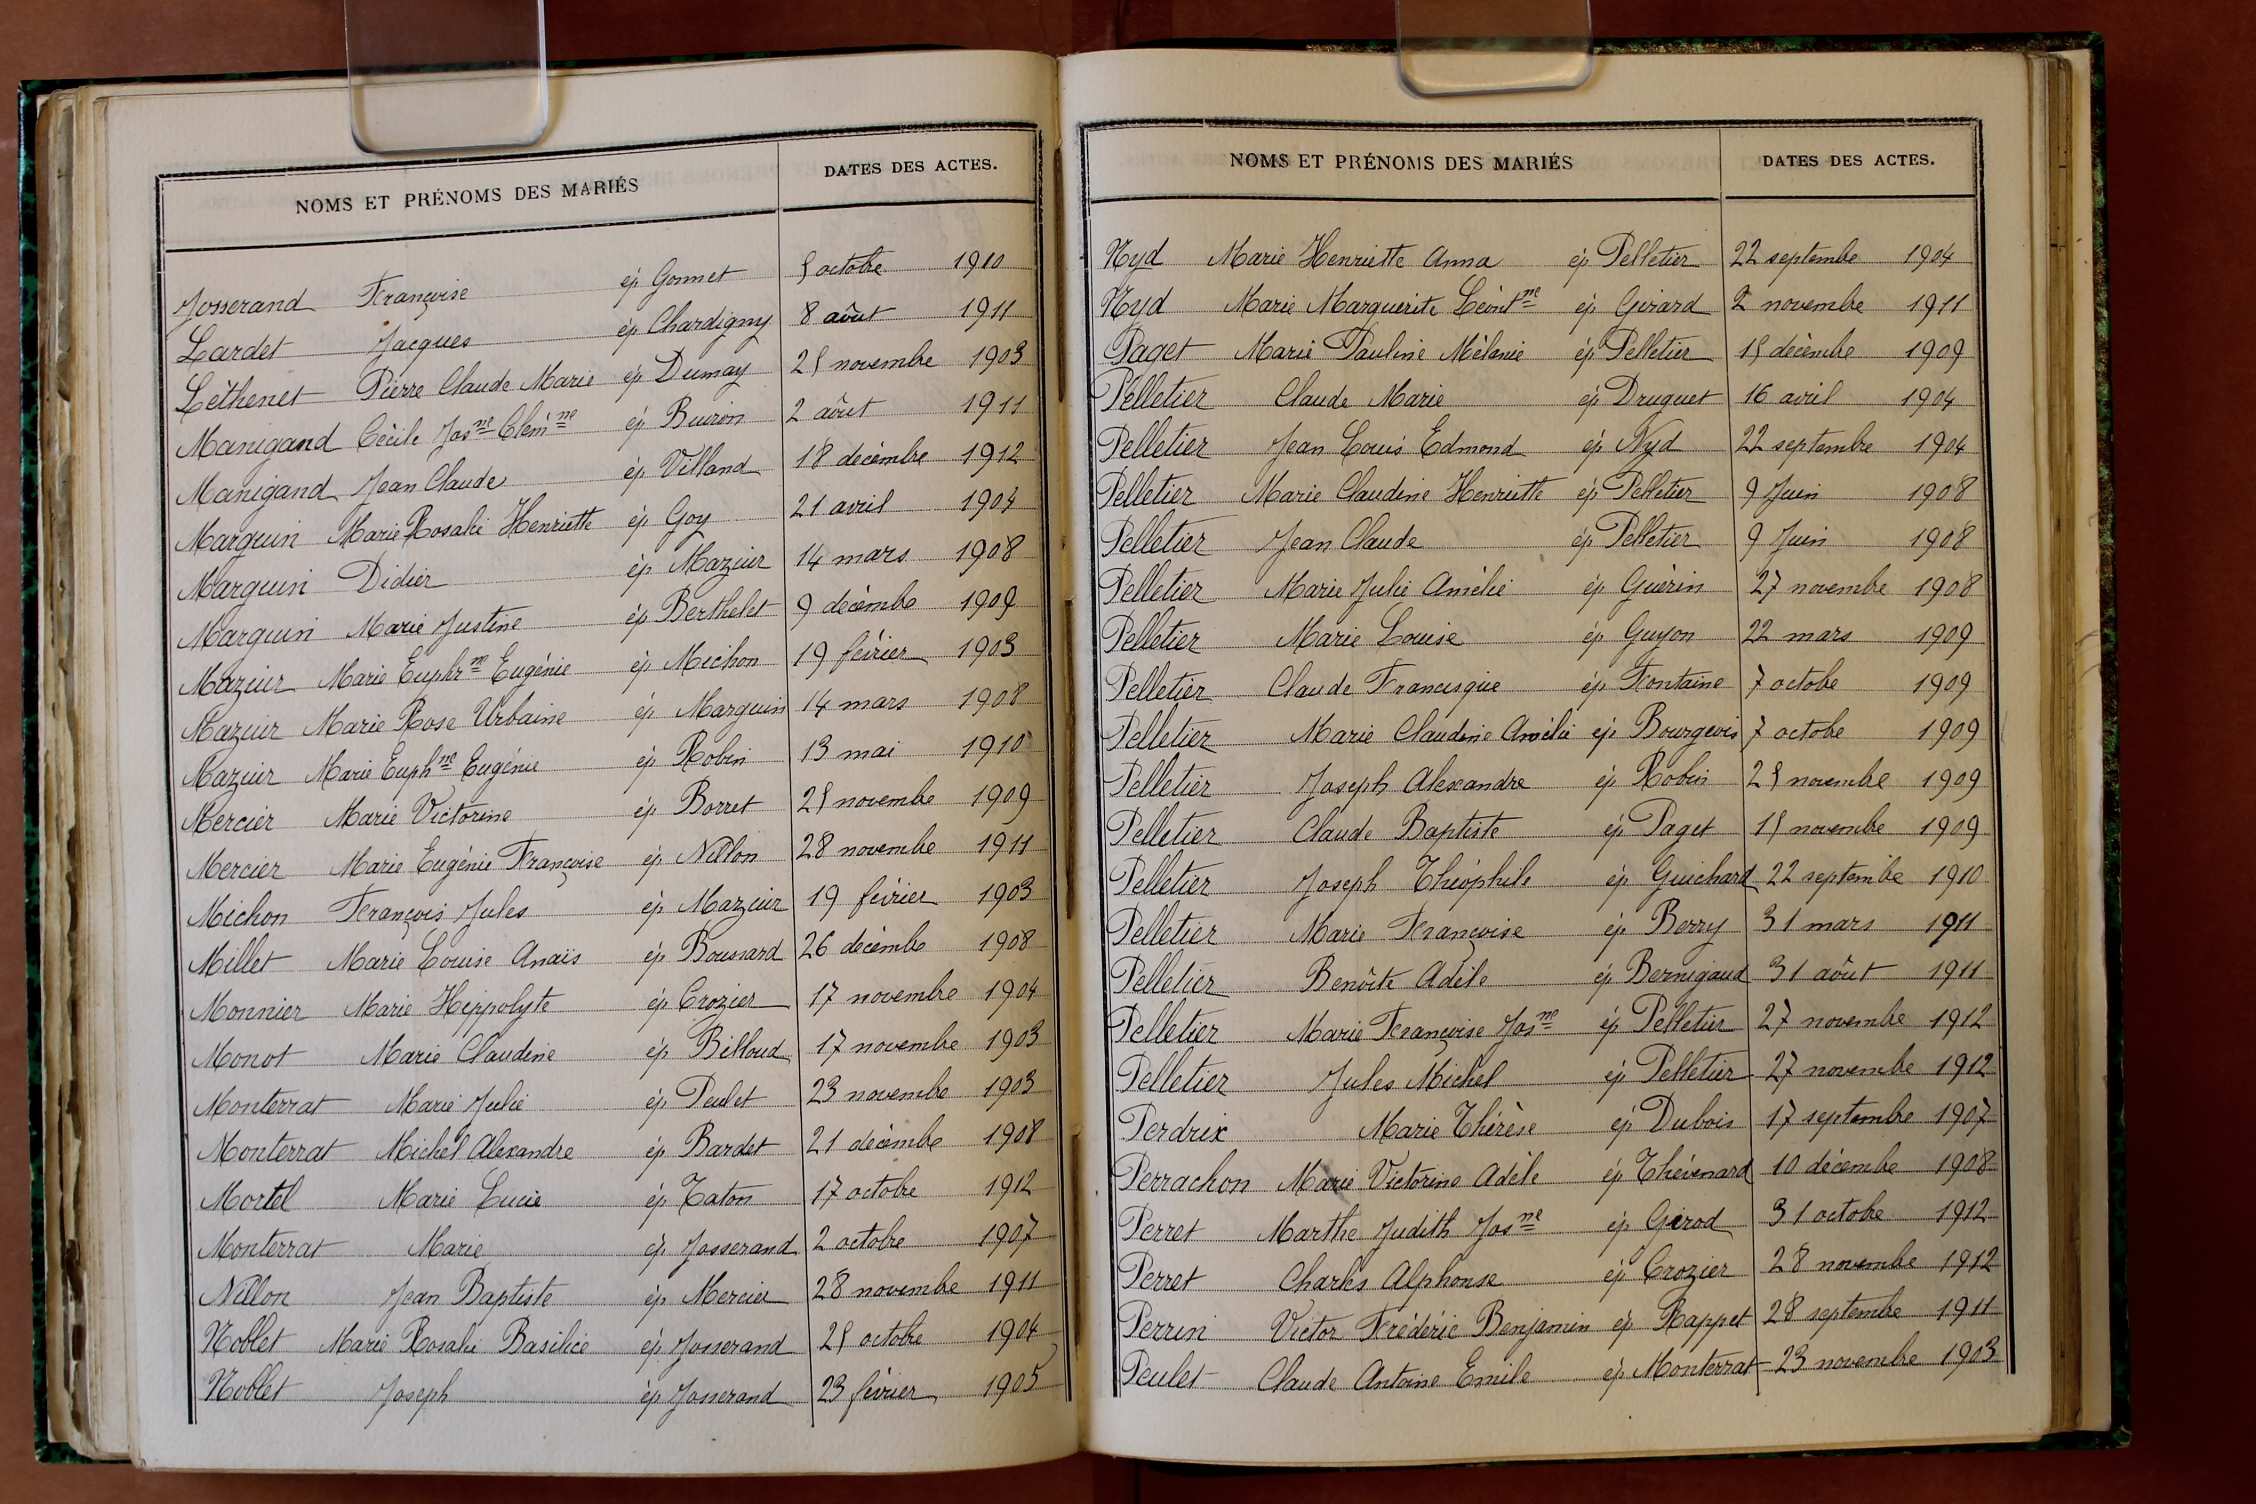 NOMS ET PRÉNOMS DES MARIÉS DATES DES ACTES.
Josserand Françoise ép Gonnet 5 octobre 1910
Lardet Jacques ép Chardigny 8 aôut 1911
Léthenet Pierre Claude Marie ép Dumay 25 novembre 1903
Manigand Cécile Jos^ne Clém^ne ép Buiron 2 aôut 1911
Manigand Jean Claude ép Villand 18 décembre 1912
Marguin Marie Rosalie Henriette ép Goy 21 avril 1904
Marguin Didier ép Mazuir 14 mars 1908
Marguin Marie Justine ép Berthelet 9 décembre 1909
Mazuir Marie Euphr^ne Eugénie ép Michon 19 février 1903
Mazuir Marie Rose Urbaine ép Marguin 14 mars 1908
Mazuir Marie Euph^ne Eugénie ép Robin 13 mai 1910
Mercier Marie Victorine ép Borret 25 novembre 1909
Mercier Marie Eugénie Françoise ép Nillon 28 novembre 1911
Michon François Jules ép Mazuir 19 février 1903
Millet Marie Louise Anaïs ép Boussard 26 décembre 1908
Monnier Marie Hippolyte ép Crozier 17 novembre 1904
Monot Marie Claudine ép Billoud 17 novembre 1903
Monterrat Marie Julie ép Peulet 23 novembre 1903
Monterrat Michel Alexandre ép Bardet 21 décembre 1908
Mortel Marie Lucie ép Taton 17 octobre 1912
Monterrat Marie ép Josserand 2 octobre 1907
Nillon Jean Baptiste ép Mercier 28 novembre 1911
Noblet Marie Rosalie Basilice ép Josserand 25 octobre 1904
Noblet Joseph ép Josserand 23 février 1905
NOMS ET PRÉNOMS DES MARIÉS DATES DES ACTES.
Nyd Marie Henriette Anna ép Pelletier 22 septembre 1904
Nyd Marie Marguerite Léont^ne ép Girard 2 novembre 1911
Paget Marie Pauline Mélanie ép Pelletier 15 décembre 1909
Pelletier Claude Marie ép Druguet 16 avril 1904
Pelletier Jean Louis Edmond ép Nyd 22 septembre 1904
Pelletier Marie Claudine Henriette ép Pelletier 9 Juin 1908
Pelletier Jean Claude ép Pelletier 9 Juin 1908
Pelletier Marie Julie Amélie ép Guérin 27 novembre 1908
Pelletier Marie Louise ép Guyon 22 mars 1909
Pelletier Claude Francisque ép Fontaine 7 octobre 1909
Pelletier Marie Claudine Amélie ép Bourgeois 7 octobre 1909
Pelletier Joseph Alexandre ép Robin 25 novembre 1909
Pelletier Claude Baptiste ép Paget 15 novembre 1909
Pelletier Joseph Théophile ép Guichard 22 septembre 1910
Pelletier Marie Françoise ép Berry 31 mars 1911
Pelletier Benôite Adèle ép Bernigaud 31 aôut 1911
Pelletier Marie Françoise Jos^ne ép Pelletier 27 novembre 1912
Pelletier Jules Michel ép Pelletier 27 novembre 1912
Perdrix Marie Thérèse ép Dubois 17 septembre 1907
Perrachon Marie Victorine Adèle ép Thévenard 10 décembre 1908
Perret Marthe Judith Jos^ne ép Girod 31 octobre 1912
Perret Charles Alphonse ép Crozier 28 novembre 1912
Perrin Victor Frédéric Benjamin ép Rappet 28 septembre 1911
Peulet Claude Antoine Emile ép Monterrat 23 novembre 1903